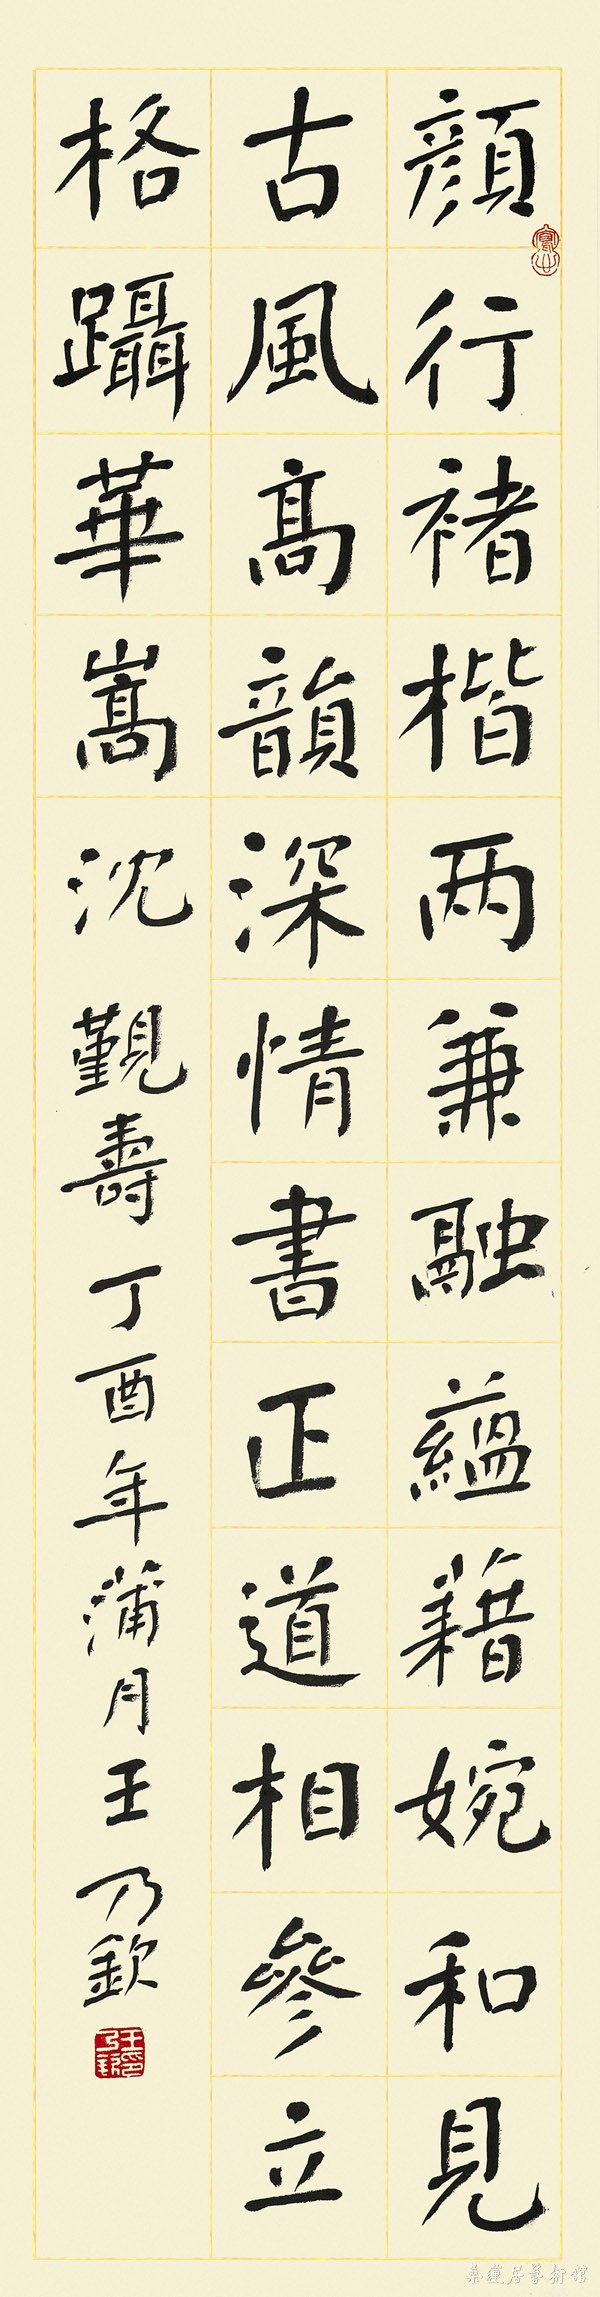 顏行褚楷两兼融蘊藉婉和見
古風高韻深情書正道相參立
格躡華嵩沈覲壽丁酉年蒲月王乃欽
王乃欽印
桑蓮居藝術館